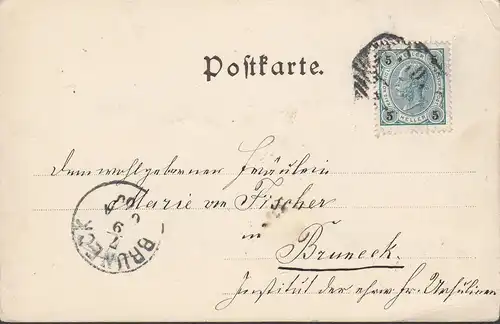 Postkarte.
5 5
HELLER
5 5
Dem wohlgebornen Fräulein
Marie von Fischer
in
Bruneck.
Institut der ehrw. Fr. Urhulinen
BRUNECK
7 9